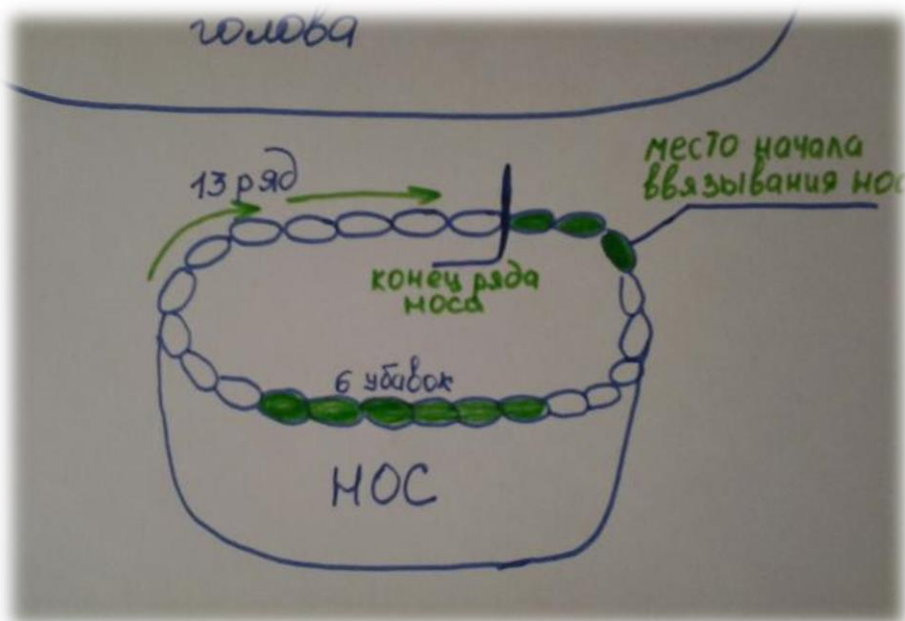 голова
13 ряд
место начала
ввязывания нос
конец ряда
носа
6 убавок
НОС